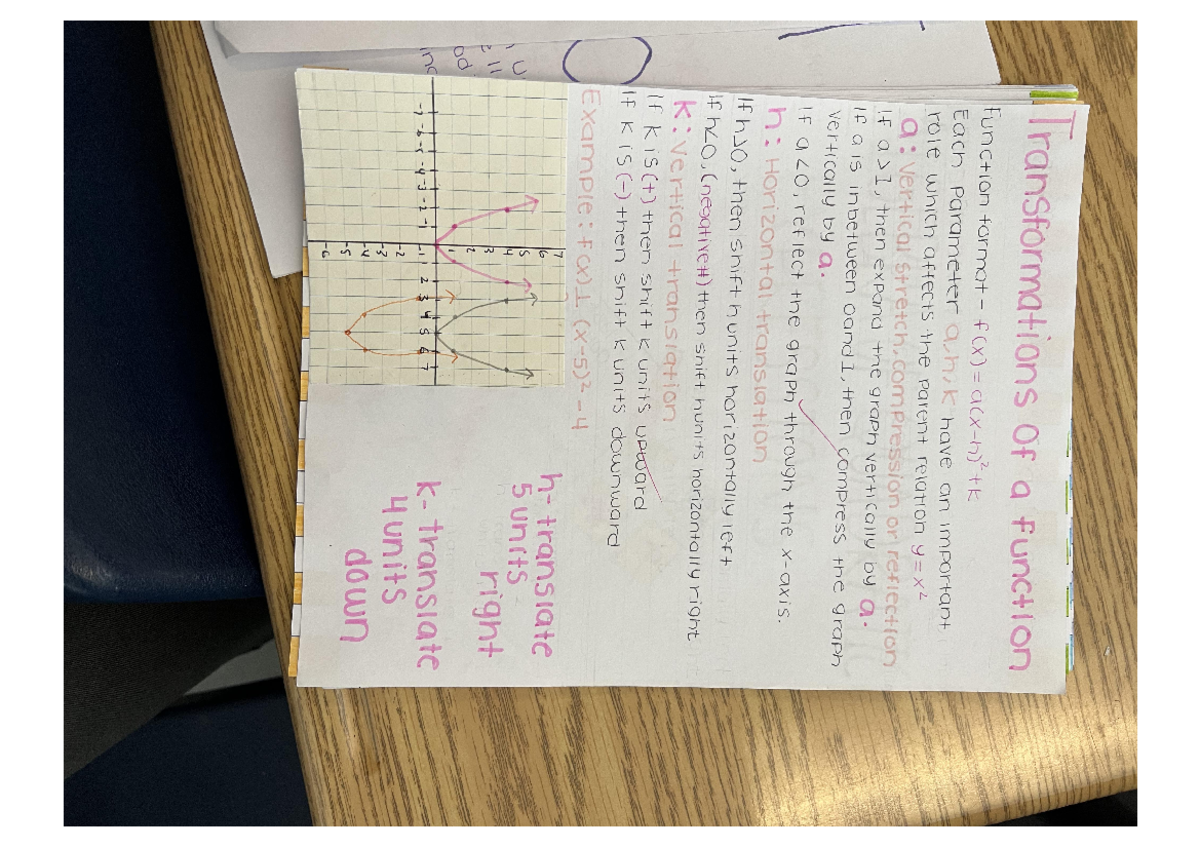 Transformations of a function
Function format - f(x) = a(x-h)² + k
Each parameter a, h, k have an important
role which affects the parent relation y = x²
a: vertical stretch, compression or reflection
if a > 1, then expand the graph vertically by a.
If a is inbetween 0 and 1, then compress the graph
vertically by a.
If a < 0, reflect the graph through the x-axis.
h: Horizontal translation
If h > 0, then shift h units horizontally left
If h < 0, (negative #) then shift h units horizontally right
k: Vertical translation
If k is (+) then shift k units upward
If k is (-) then shift k units downward
Example: f(x) = (x-5)² - 4
7
6
5
4
3
2
1
-7 -6 -5 -4 -3 -2 -1 1 2 3 4 5 6 7
-1
-2
-3
-4
-5
-6
h- translate
5 units
right
k- translate
4 units
down